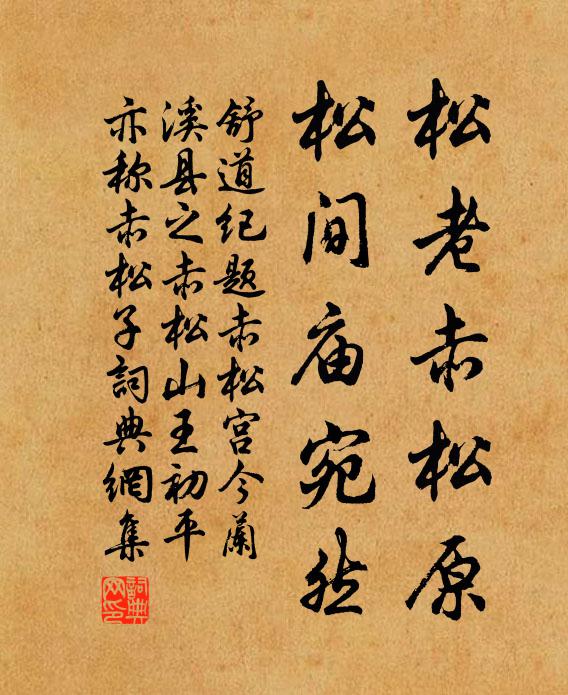 松老赤松原
松间庙宛然
舒道纪题赤松宫今蘭
溪县之赤松山王初平
亦称赤松子詞典網集
詞典网印